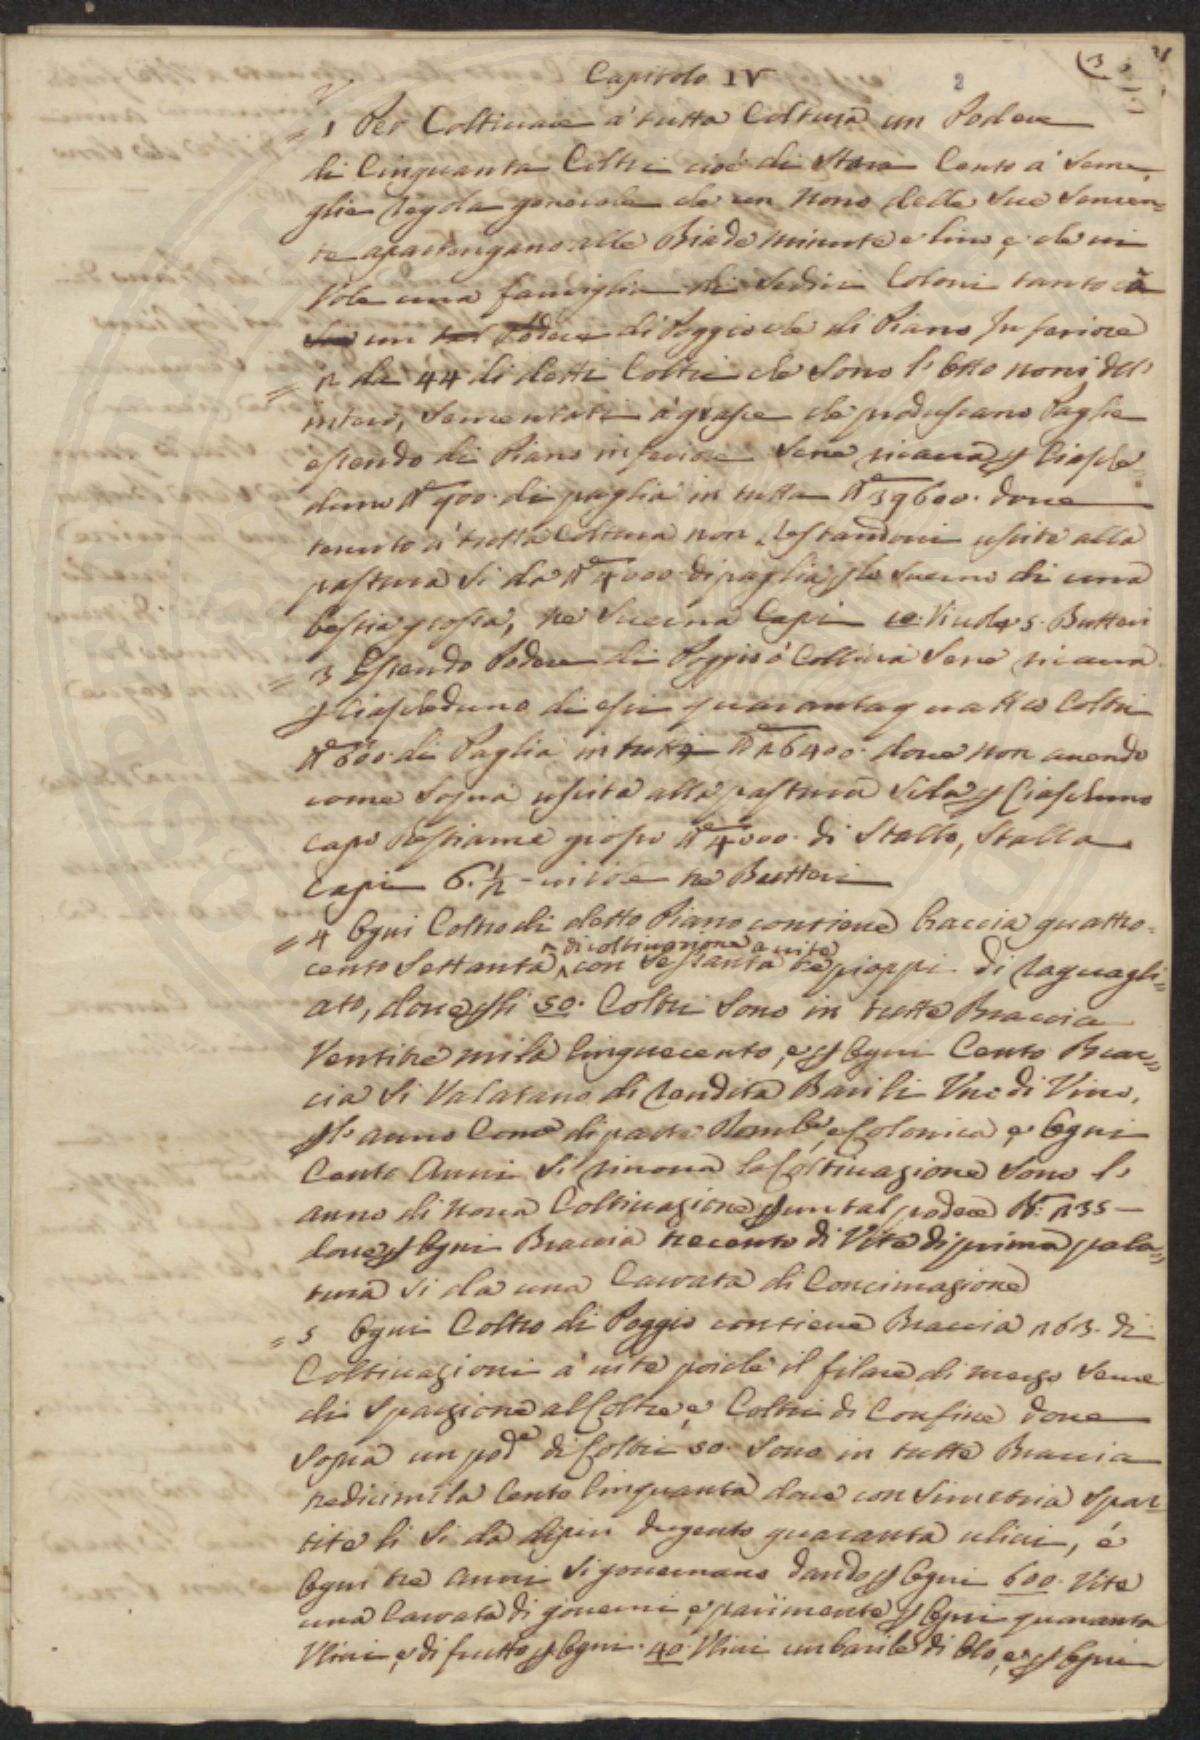 Capitolo IV
3
2
= 1 Per Coltivare a' tutta Coltura un Podere
di Cinquanta Coltri cioè di Stara Cento a' seme,
glie regola generale che un Nono delle Sue Semen=
te apartengano alle Biade minute e lino, e che vi
Vole una famiglia di Sedici Coloni tanto
un Podere di Poggio che di Piano Inferiore
= 2 da 44 di detti Coltri che Sono l' Otto noni dell'
intero, Sementati a' grasce che produscano Paglie
essendo di Piano inferiore Sene ricava p Ciasche
duno 900 di paglia in tutta 39600 dove
tenuto a' tutta Coltura non restandovi uscite alla
pastura Si da 4000 di paglia p lo Sverno di una
bestia grossa, ne Sverna Capi 10 5 Butteri
= 3 Essendo Podere di Poggio ò Collina Sene ricava
p Ciascheduno di essi quarantaquattro Coltri
600 di Paglia in tutti 26400 dove non avendo
come Sopra uscita alla pastura Si da p Ciaschuno
capo Bestiame grosso 4000 di Stallo, Stalla
capi 6. 1/2 - Butteri
= 4 Ogni Coltro di detto Piano contiene braccia quattro=
cento Settanta di coltivazione a vite con Sessanta tre pioppi di raguagli=
ato, dove p li 50. Coltri Sono in tutte Braccia
Ventitre mila Cinquecento, e p Ogni Cento Brac=
cia Si Valutano di rendita Barili Une di Vino,
p l' anno Come di parte e Colonica e Ogni
Cento Anni Si rinova la Coltivazione Sono l'
anno di nova Coltivazione p un tal podere 235 —
dove p Ogni Braccia trecento di Vite di prima pota=
tura Si da una Carrata di Concimazione
= 5 Ogni Coltro di Poggio contiene Braccia 263. di
Coltivazioni a' vite poichè il filare di mezzo Serve
di Spartizione al Coltro, e Coltri di Confine dove
Sopra un pod.e di Coltri 50. Sono in tutte Braccia
tredicimila Cento Cinquanta dove con Simetria Spar=
tite li Si da dipiu dugento quaranta ulivi, e'
Ogni tre Anni Si governano dando p Ogni 600. Vite
una Carrata di governi e parimente p Ogni quaranta
Vlivi e di frutto p Ogni. 40. Vlivi un barile di Olo, e p Ogni